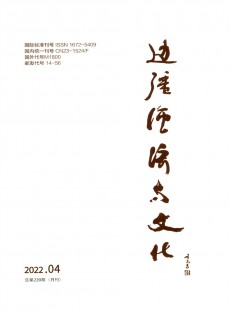 国际标准刊号 ISSN 1672-5409
国内统一刊号 CN23-1524/F
国外代号M1800
邮发代号 14-56
边疆经济与文化
2022.04
总第220期 (月刊)